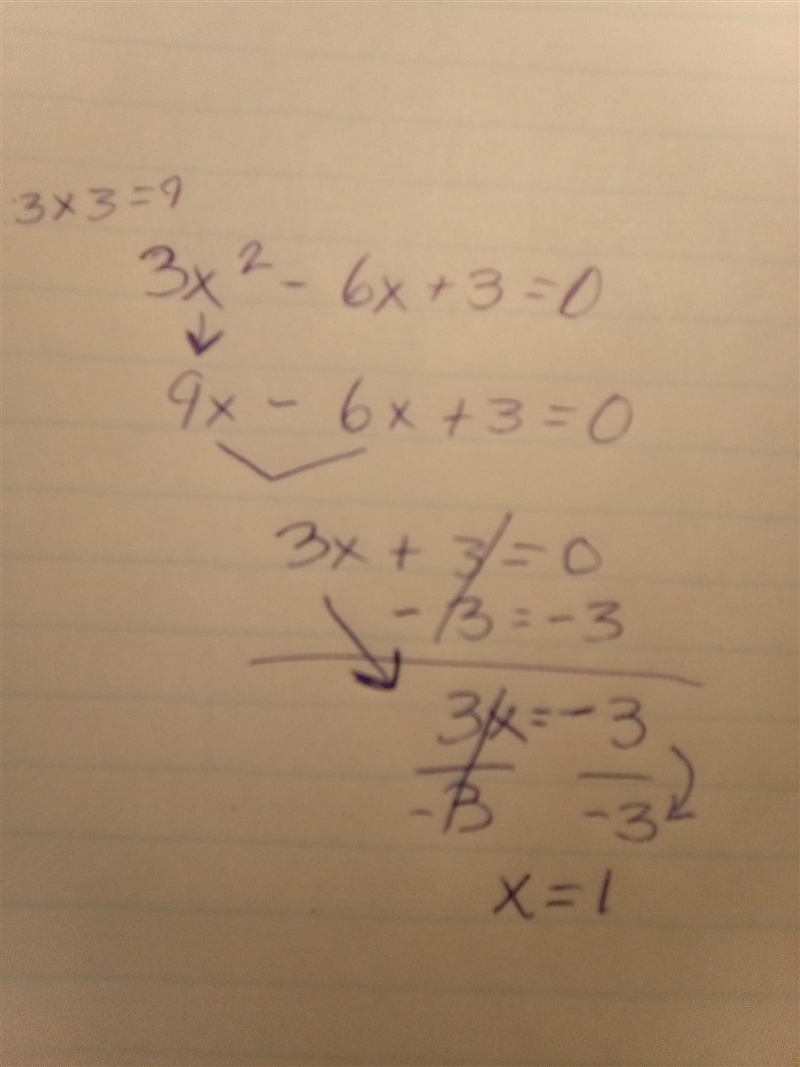 3x3=9
3x² - 6x + 3 = 0
9x - 6x + 3 = 0
3x + 3 = 0
- 3 = -3
3x = -3
-3 -3
x = 1